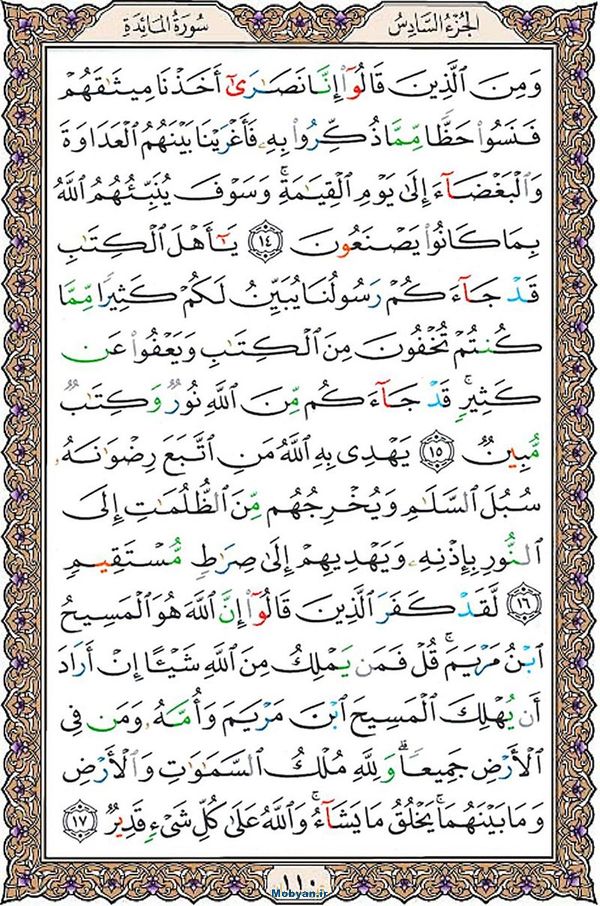 الجُزْءُ السَّادِسُ
سُورَةُ المَائِدَةِ
وَمِنَ ٱلَّذِينَ قَالُوٓا۟ إِنَّا نَصَٰرَىٰٓ أَخَذْنَا مِيثَٰقَهُمْ
فَنَسُوا۟ حَظًّا مِّمَّا ذُكِّرُوا۟ بِهِۦ فَأَغْرَيْنَا بَيْنَهُمُ ٱلْعَدَاوَةَ
وَٱلْبَغْضَآءَ إِلَىٰ يَوْمِ ٱلْقِيَٰمَةِ ۚ وَسَوْفَ يُنَبِّئُهُمُ ٱللَّهُ
بِمَا كَانُوا۟ يَصْنَعُونَ ١٤ يَٰٓأَهْلَ ٱلْكِتَٰبِ
قَدْ جَآءَكُمْ رَسُولُنَا يُبَيِّنُ لَكُمْ كَثِيرًا مِّمَّا
كُنتُمْ تُخْفُونَ مِنَ ٱلْكِتَٰبِ وَيَعْفُوا۟ عَن
كَثِيرٍ ۚ قَدْ جَآءَكُم مِّنَ ٱللَّهِ نُورٌ وَكِتَٰبٌ
مُّبِينٌ ١٥ يَهْدِى بِهِ ٱللَّهُ مَنِ ٱتَّبَعَ رِضْوَٰنَهُۥ
سُبُلَ ٱلسَّلَٰمِ وَيُخْرِجُهُم مِّنَ ٱلظُّلُمَٰتِ إِلَى
ٱلنُّورِ بِإِذْنِهِۦ وَيَهْدِيهِمْ إِلَىٰ صِرَٰطٍ مُّسْتَقِيمٍ
١٦ لَّقَدْ كَفَرَ ٱلَّذِينَ قَالُوٓا۟ إِنَّ ٱللَّهَ هُوَ ٱلْمَسِيحُ
ٱبْنُ مَرْيَمَ ۚ قُلْ فَمَن يَمْلِكُ مِنَ ٱللَّهِ شَيْـًٔا إِنْ أَرَادَ
أَن يُهْلِكَ ٱلْمَسِيحَ ٱبْنَ مَرْيَمَ وَأُمَّهُۥ وَمَن فِى
ٱلْأَرْضِ جَمِيعًا ۗ وَلِلَّهِ مُلْكُ ٱلسَّمَٰوَٰتِ وَٱلْأَرْضِ
وَمَا بَيْنَهُمَا ۚ يَخْلُقُ مَا يَشَآءُ ۚ وَٱللَّهُ عَلَىٰ كُلِّ شَىْءٍ قَدِيرٌ ١٧
١١٠
Mobyan.ir